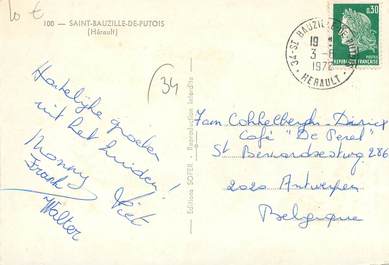 10 €
100 - SAINT-BAUZILLE-DE-PUTOIS
(Hérault)
34
Hartelijke groeten
uit het zuiden!
Nonny Piet
Frank
Walter
Editions SOFER - Reproduction Interdite
34-ST BAUZILLE-DE-PUTOIS
19
3-8
1972
HERAULT
0,30
REPUBLIQUE FRANÇAISE
Fam Cobbelbergh-Dierick
Café "De Perel"
St Bernardsesteenweg 286
2020 Antwerpen
Belgique